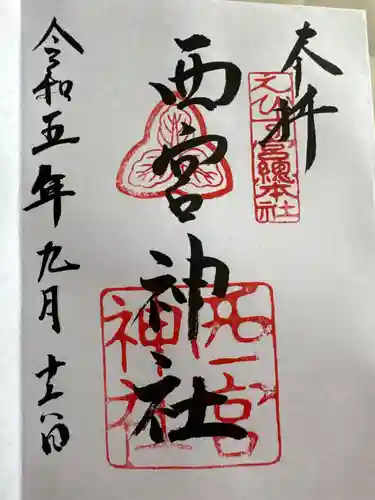 奉拝
えびす宮総本社
西宮神社
西宮神社
令和五年九月十六日